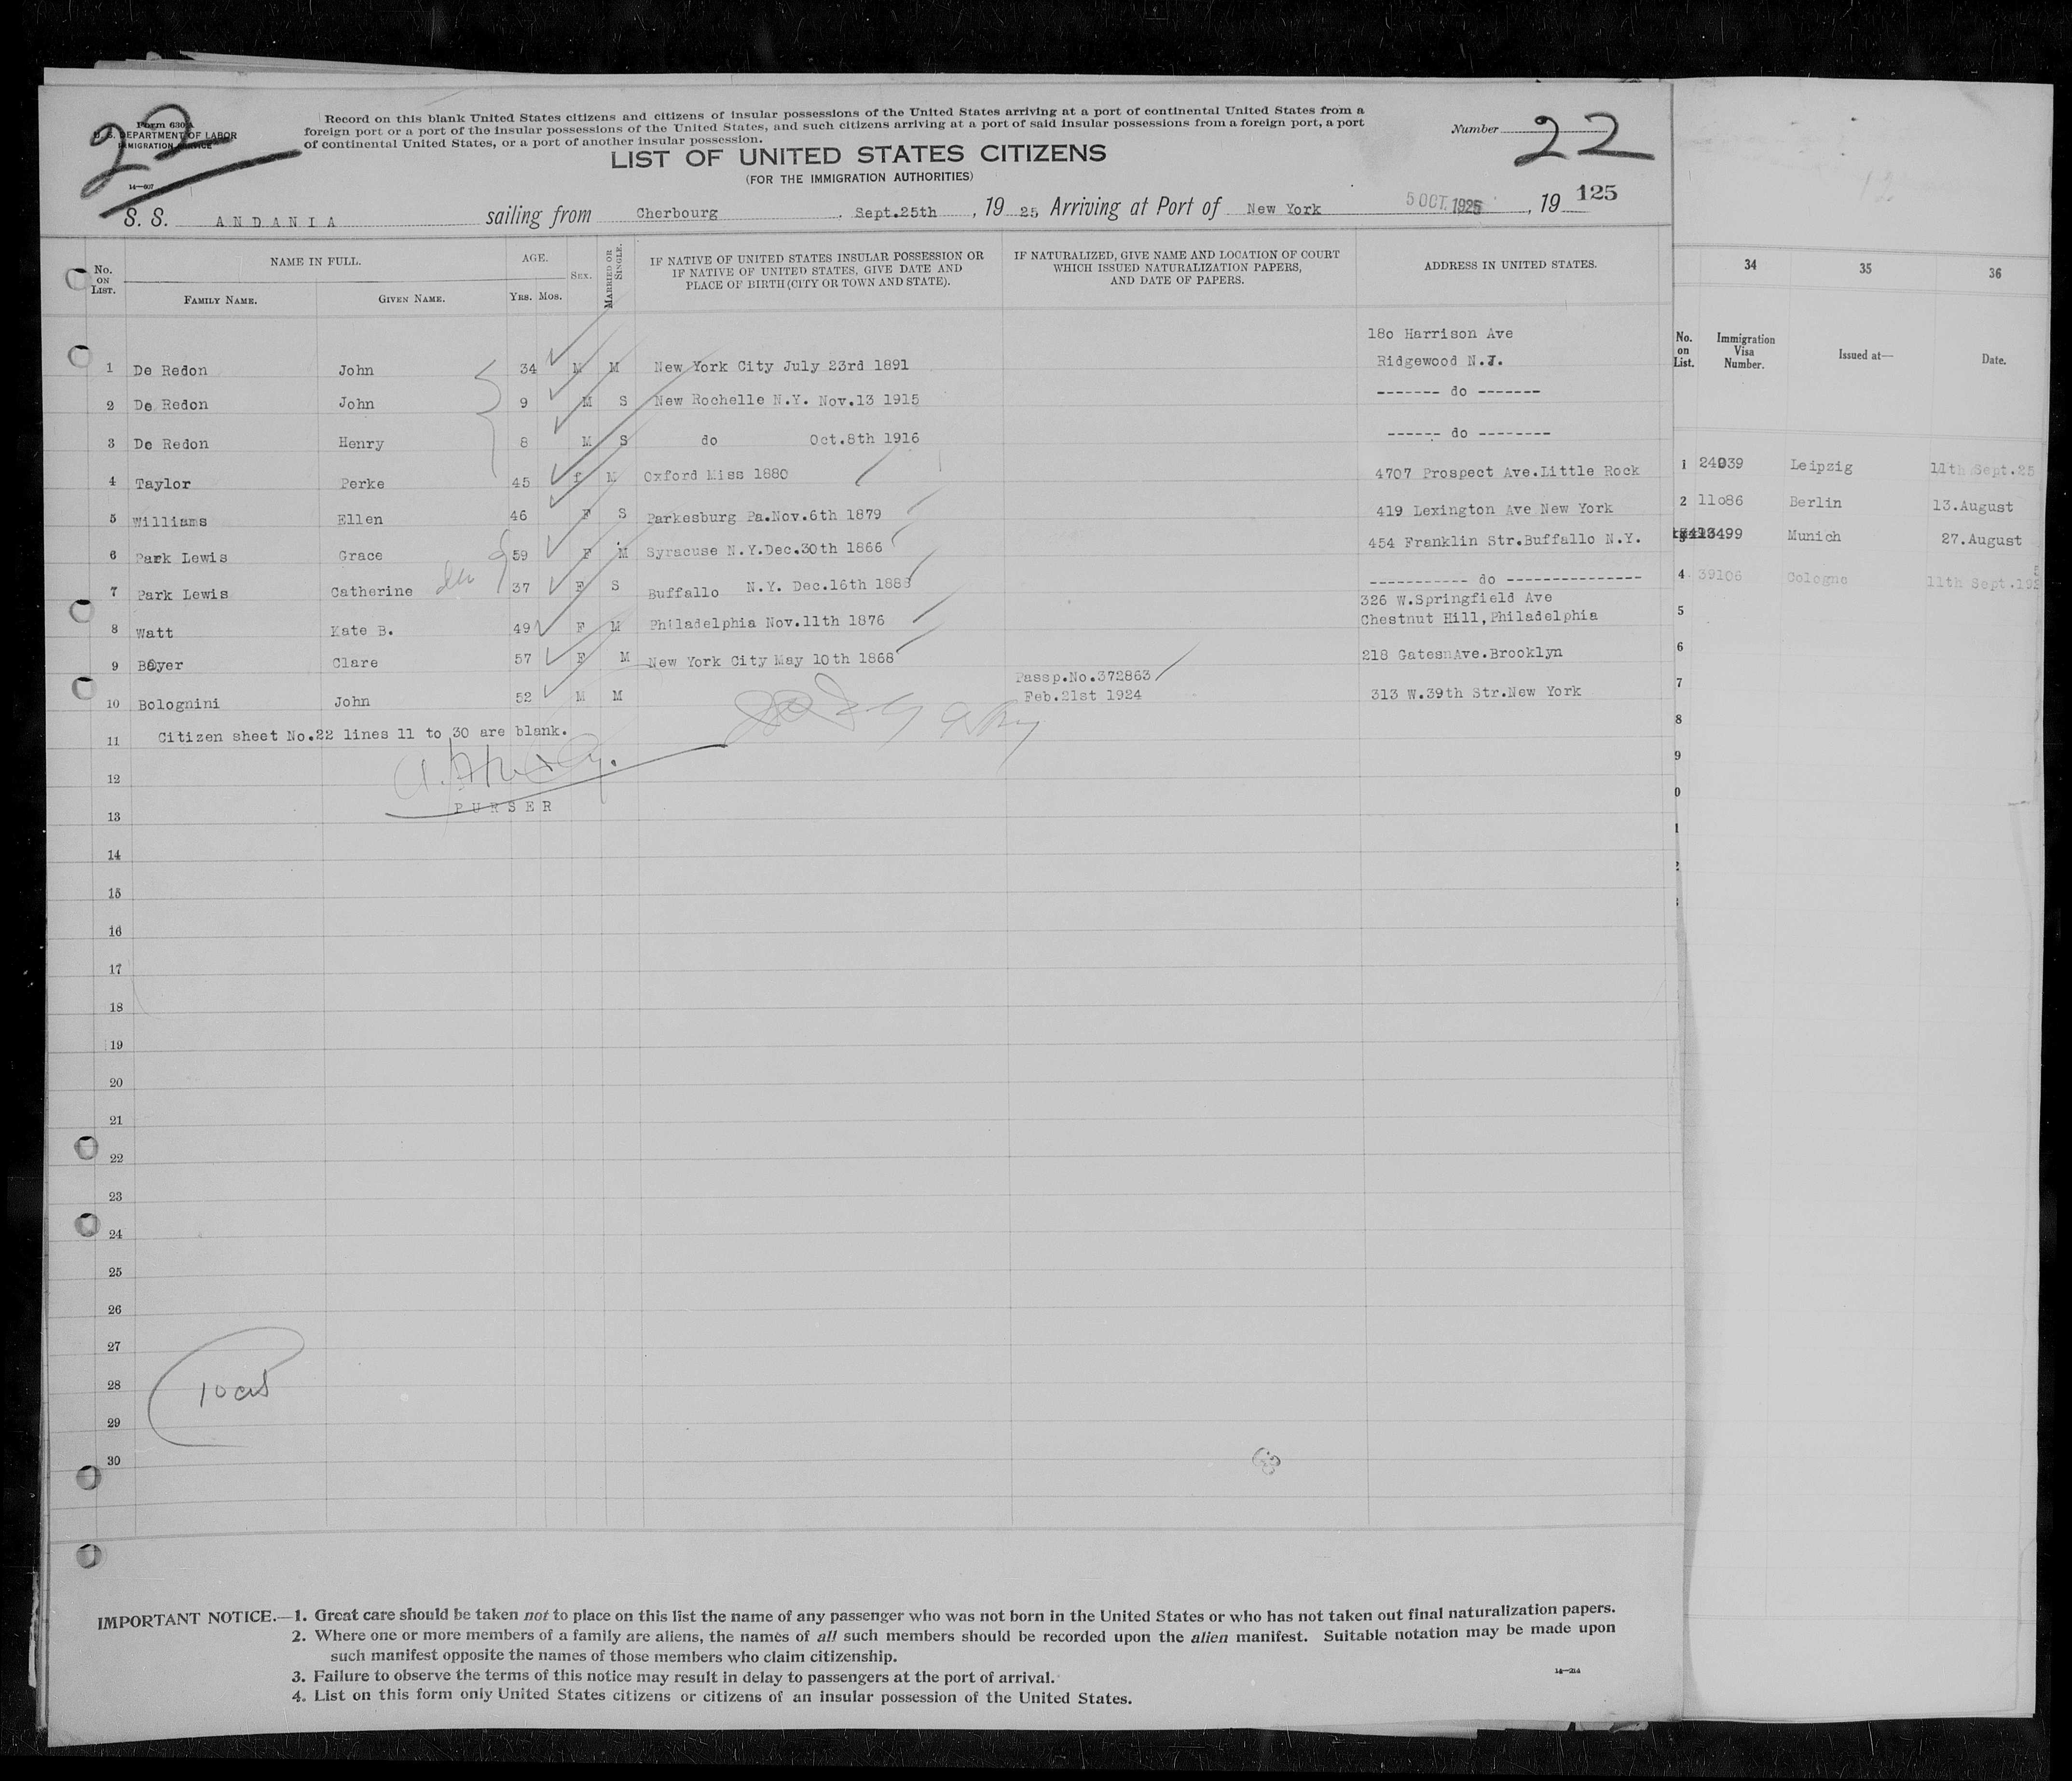 22
Form 630
U. S. DEPARTMENT OF LABOR
IMMIGRATION SERVICE
14—607
Record on this blank United States citizens and citizens of insular possessions of the United States arriving at a port of continental United States from a
foreign port or a port of the insular possessions of the United States, and such citizens arriving at a port of said insular possessions from a foreign port, a port
of continental United States, or a port of another insular possession.
Number 22
LIST OF UNITED STATES CITIZENS
(FOR THE IMMIGRATION AUTHORITIES)
125
S. S. ANDANIA sailing from Cherbourg, Sept.25th, 19 25, Arriving at Port of New York 5 OCT. 1925, 19
No. ON LIST. NAME IN FULL. FAMILY NAME. GIVEN NAME. AGE. YRS. MOS. SEX. MARRIED OR SINGLE. IF NATIVE OF UNITED STATES INSULAR POSSESSION OR IF NATIVE OF UNITED STATES, GIVE DATE AND PLACE OF BIRTH (CITY OR TOWN AND STATE). IF NATURALIZED, GIVE NAME AND LOCATION OF COURT WHICH ISSUED NATURALIZATION PAPERS, AND DATE OF PAPERS. ADDRESS IN UNITED STATES.
180 Harrison Ave
1 De Redon John 34 M M New York City July 23rd 1891 Ridgewood N.J.
2 De Redon John 9 M S New Rochelle N.Y. Nov.13 1915 ------- do -------
3 De Redon Henry 8 M S do Oct.8th 1916 ------ do --------
4 Taylor Perke 45 f M Oxford Miss 1880 4707 Prospect Ave.Little Rock
5 Williams Ellen 46 F S Parkesburg Pa.Nov.6th 1879 419 Lexington Ave New York
6 Park Lewis Grace 59 F M Syracuse N.Y.Dec.30th 1866 454 Franklin Str.Buffallo N.Y.
7 Park Lewis Catherine 37 F S Buffallo N.Y. Dec.16th 1888 ----------- do ---------------
326 W.Springfield Ave
8 Watt Kate B. 49 F M Philadelphia Nov.11th 1876 Chestnut Hill,Philadelphia
9 Boyer Clare 57 F M New York City May 10th 1868 218 Gates Ave.Brooklyn
Passp.No.372863
10 Bolognini John 52 M M Feb.21st 1924 313 W.39th Str.New York
11 Citizen sheet No.22 lines 11 to 30 are blank.
12
PURSER
13
14
15
16
17
18
19
20
21
22
23
24
25
26
27
28
29
30
IMPORTANT NOTICE.—1. Great care should be taken not to place on this list the name of any passenger who was not born in the United States or who has not taken out final naturalization papers.
2. Where one or more members of a family are aliens, the names of all such members should be recorded upon the alien manifest. Suitable notation may be made upon
such manifest opposite the names of those members who claim citizenship.
3. Failure to observe the terms of this notice may result in delay to passengers at the port of arrival.
4. List on this form only United States citizens or citizens of an insular possession of the United States.
14—214
34 35 36
No. on List. Immigration Visa Number. Issued at— Date.
1 24039 Leipzig 11th Sept.25
2 11086 Berlin 13.August
Munich 27.August
4 39106 Cologne 11th Sept.192
5
6
7
8
9
0
1
2